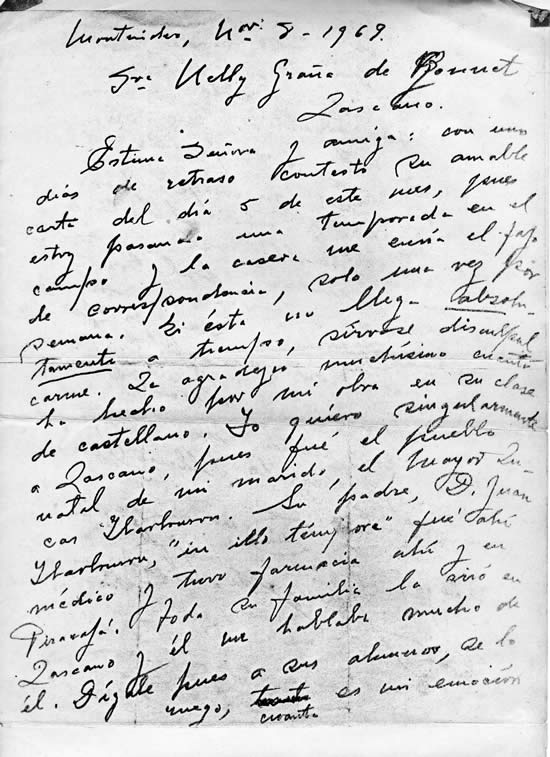 Montevideo, Nov. 8 - 1969.
Sra Nelly Graña de Bonnet
Lascano.
Estima Señora y amiga: con unos
días de retraso contesto su amable
carta del día 5 de este mes, pues
estoy pasando una temporada en el
campo y la casera me envía el fajo
de correspondencia, solo una vez por
semana. Si ésta no llega absolu-
tamente a tiempo, sírvase disculpar
carme. Le agradezco muchísimo cuanto
ha hecho por mi obra en su clase
de castellano. Yo quiero singularmente
a Lascano, pues fué el pueblo
natal de mi marido, el Mayor Lu-
cas Ibarburu. Su padre, D. Juan
Ibarburu, "in illo témpore" fué ahí
médico y tuvo farmacia ahí y en
Piravajá. Toda su familia la       en
Lascano y él me hablaba mucho de
él. Dígale pues a sus alumnos, se lo
ruego, cuanta es mi emoción